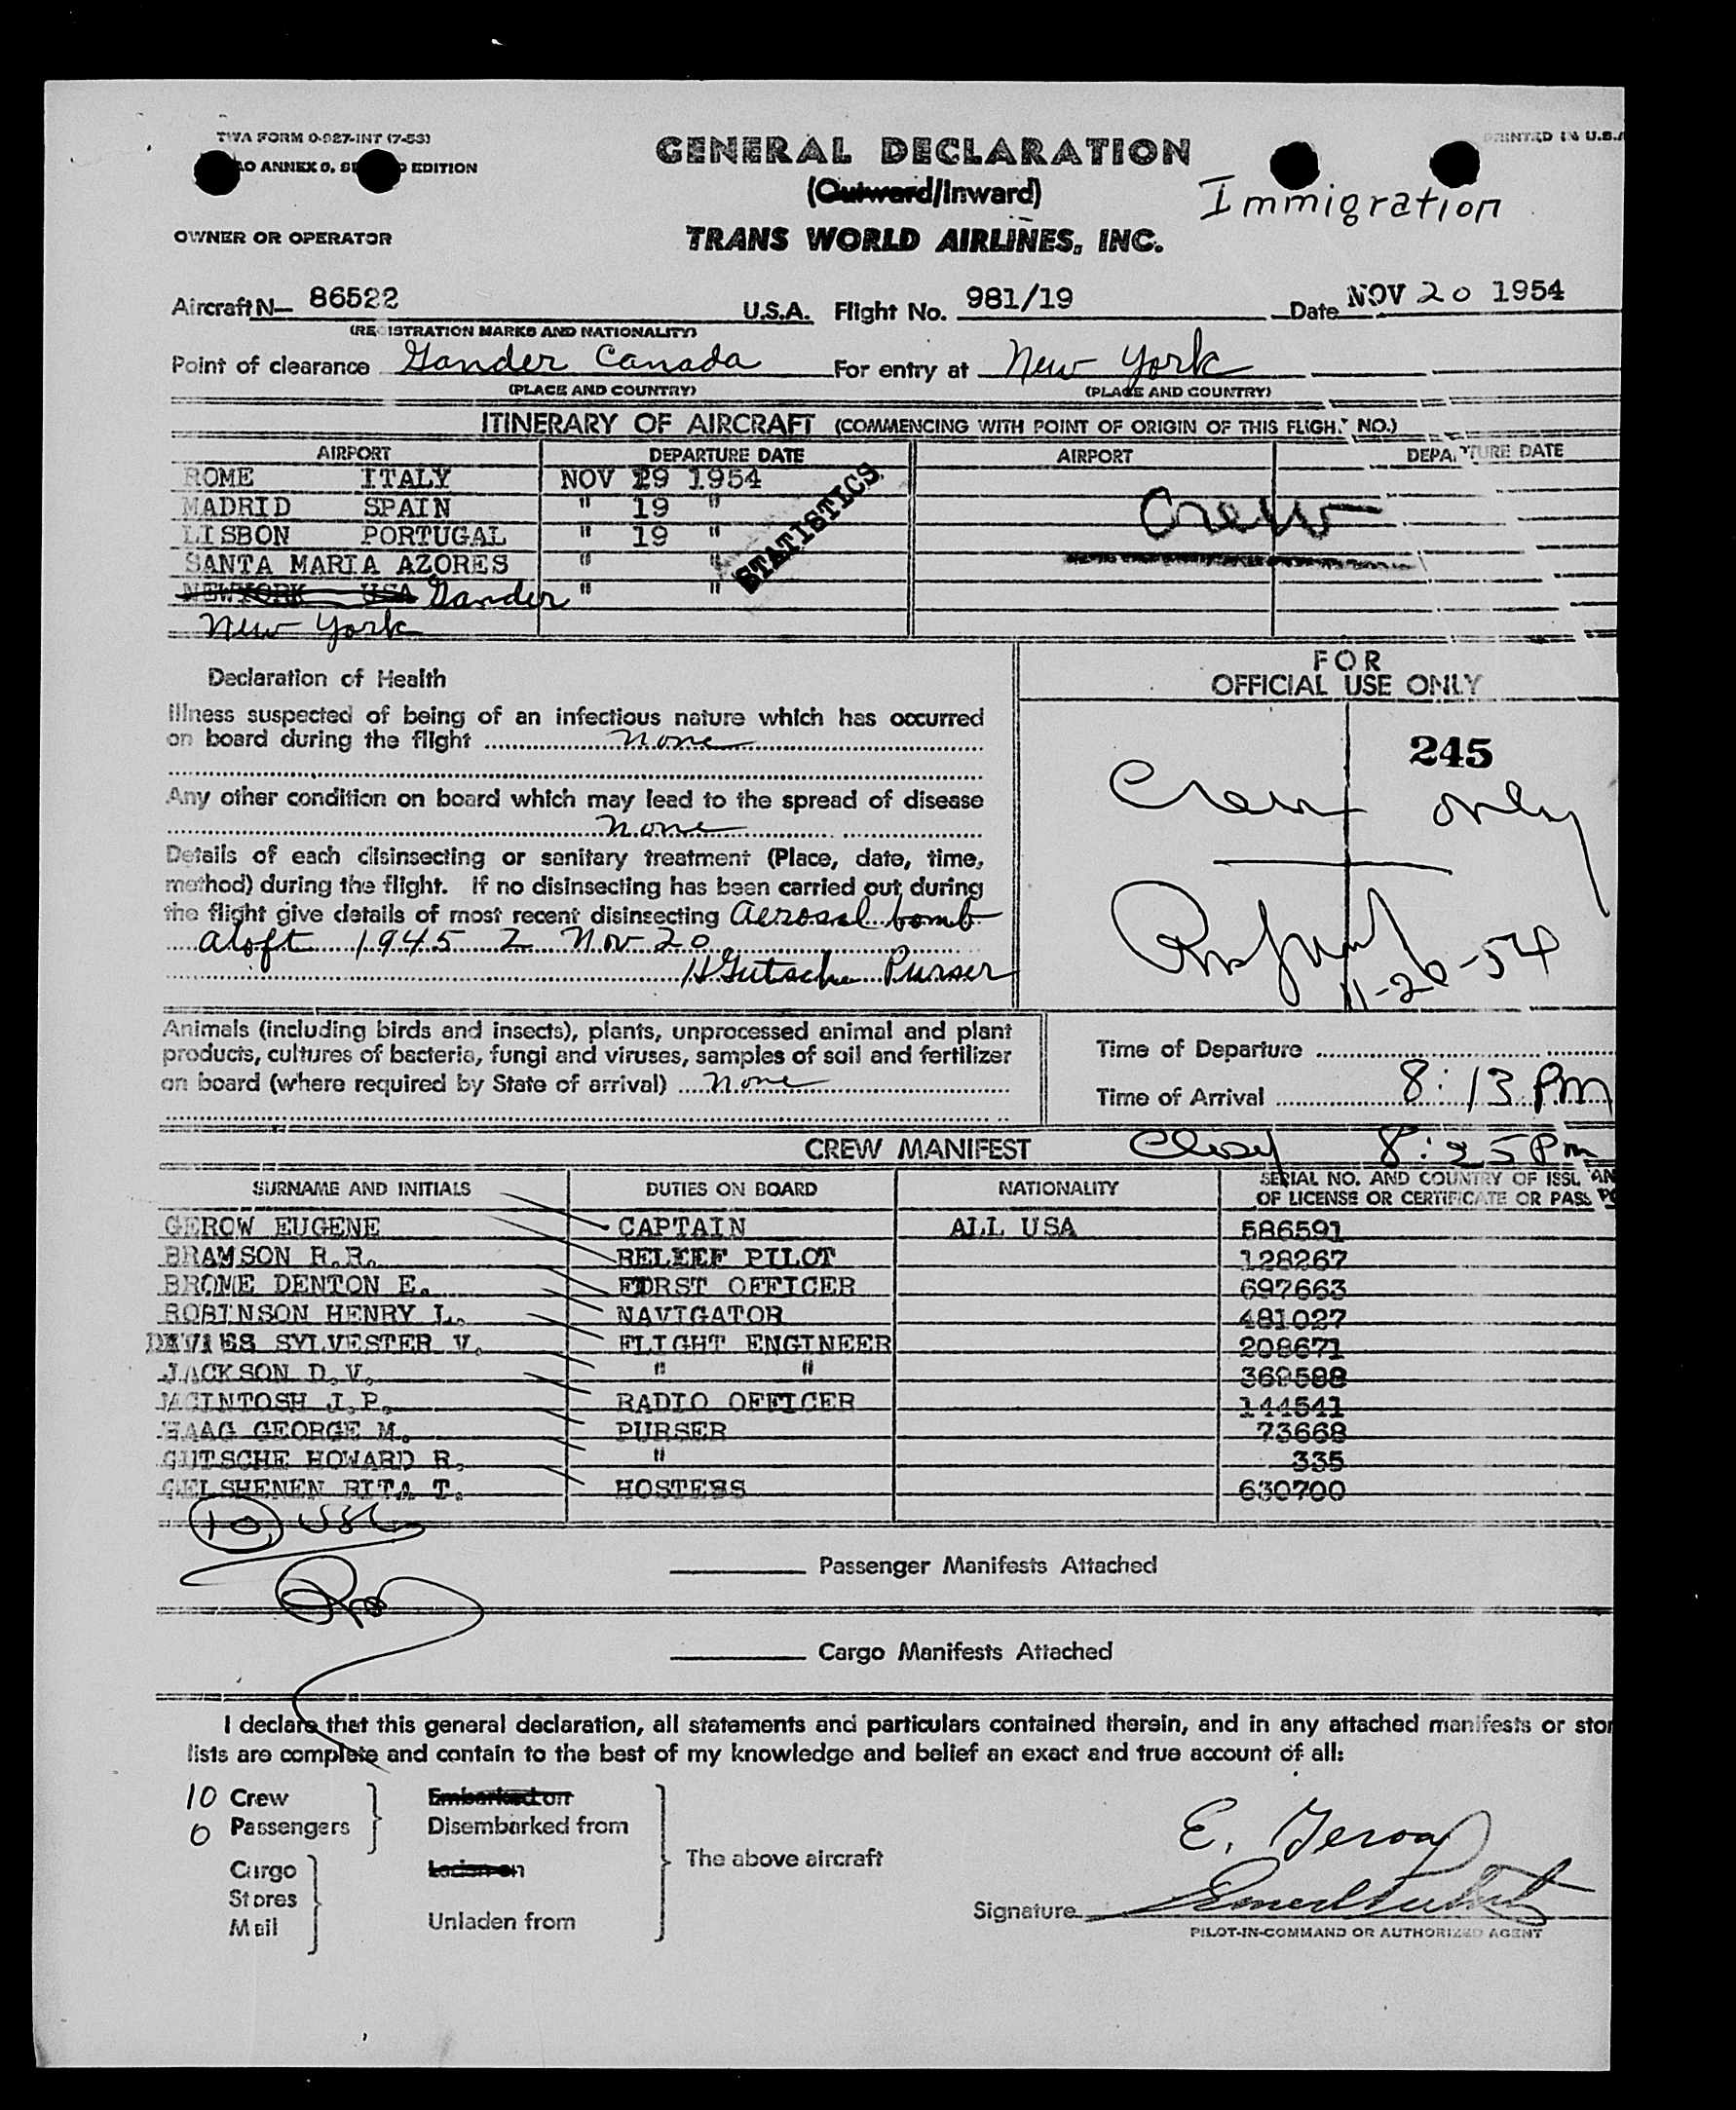 TWA FORM O-927-INT (7-53)
PRINTED IN U.S.A
AO ANNEX 9, EDITION
GENERAL DECLARATION
(Outward/Inward)
Immigration
OWNER OR OPERATOR
TRANS WORLD AIRLINES, INC.
Aircraft N— 86522 U.S.A. Flight No. 981/19 Date NOV 20 1954
(REGISTRATION MARKS AND NATIONALITY)
Point of clearance Gander Canada For entry at New York
(PLACE AND COUNTRY) (PLACE AND COUNTRY)
ITINERARY OF AIRCRAFT (COMMENCING WITH POINT OF ORIGIN OF THIS FLIGHT NO.)
AIRPORT DEPARTURE DATE AIRPORT DEPARTURE DATE
ROME ITALY NOV 19 1954
MADRID SPAIN " 19 "
LISBON PORTUGAL " 19 "
SANTA MARIA AZORES " "
NEWYORK USA Gander " "
New York
STATISTICS
Crew
Declaration of Health
FOR
OFFICIAL USE ONLY
Illness suspected of being of an infectious nature which has occurred
on board during the flight none
Any other condition on board which may lead to the spread of disease
none
Details of each disinsecting or sanitary treatment (Place, date, time,
method) during the flight. If no disinsecting has been carried out during
the flight give details of most recent disinsecting aerosol bomb
aloft 1945 Z Nov 20
H Gutsche Purser
245
Crew only
11-20-54
Animals (including birds and insects), plants, unprocessed animal and plant
products, cultures of bacteria, fungi and viruses, samples of soil and fertilizer
on board (where required by State of arrival) none
Time of Departure
Time of Arrival 8:13 Pm
CREW MANIFEST
8:25 Pm
SURNAME AND INITIALS DUTIES ON BOARD NATIONALITY SERIAL NO. AND COUNTRY OF ISSUAN
OF LICENSE OR CERTIFICATE OR PASSPO
GEROW EUGENE CAPTAIN ALL USA 586591
BRAMSON R.R. RELIEF PILOT 128267
BROME DENTON E. FIRST OFFICER 697663
ROBINSON HENRY L. NAVIGATOR 481027
DAVIES SYLVESTER V. FLIGHT ENGINEER 208671
JACKSON D.V. " " 369588
MCINTOSH J.P. RADIO OFFICER 144541
HAAG GEORGE M. PURSER 73668
GUTSCHE HOWARD R. " 335
GELSHENEN RITA T. HOSTESS 630700
10 USC
Passenger Manifests Attached
Cargo Manifests Attached
I declare that this general declaration, all statements and particulars contained therein, and in any attached manifests or stor
lists are complete and contain to the best of my knowledge and belief an exact and true account of all:
10 Crew Embarked on
0 Passengers Disembarked from
The above aircraft
Cargo Laden on
Stores
Mail Unladen from
E. Gerow
Signature
PILOT-IN-COMMAND OR AUTHORIZED AGENT